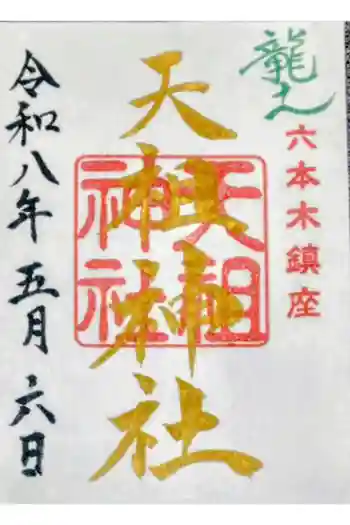 龍土
六本木鎮座
天祖神社
天祖神社
令和八年五月六日